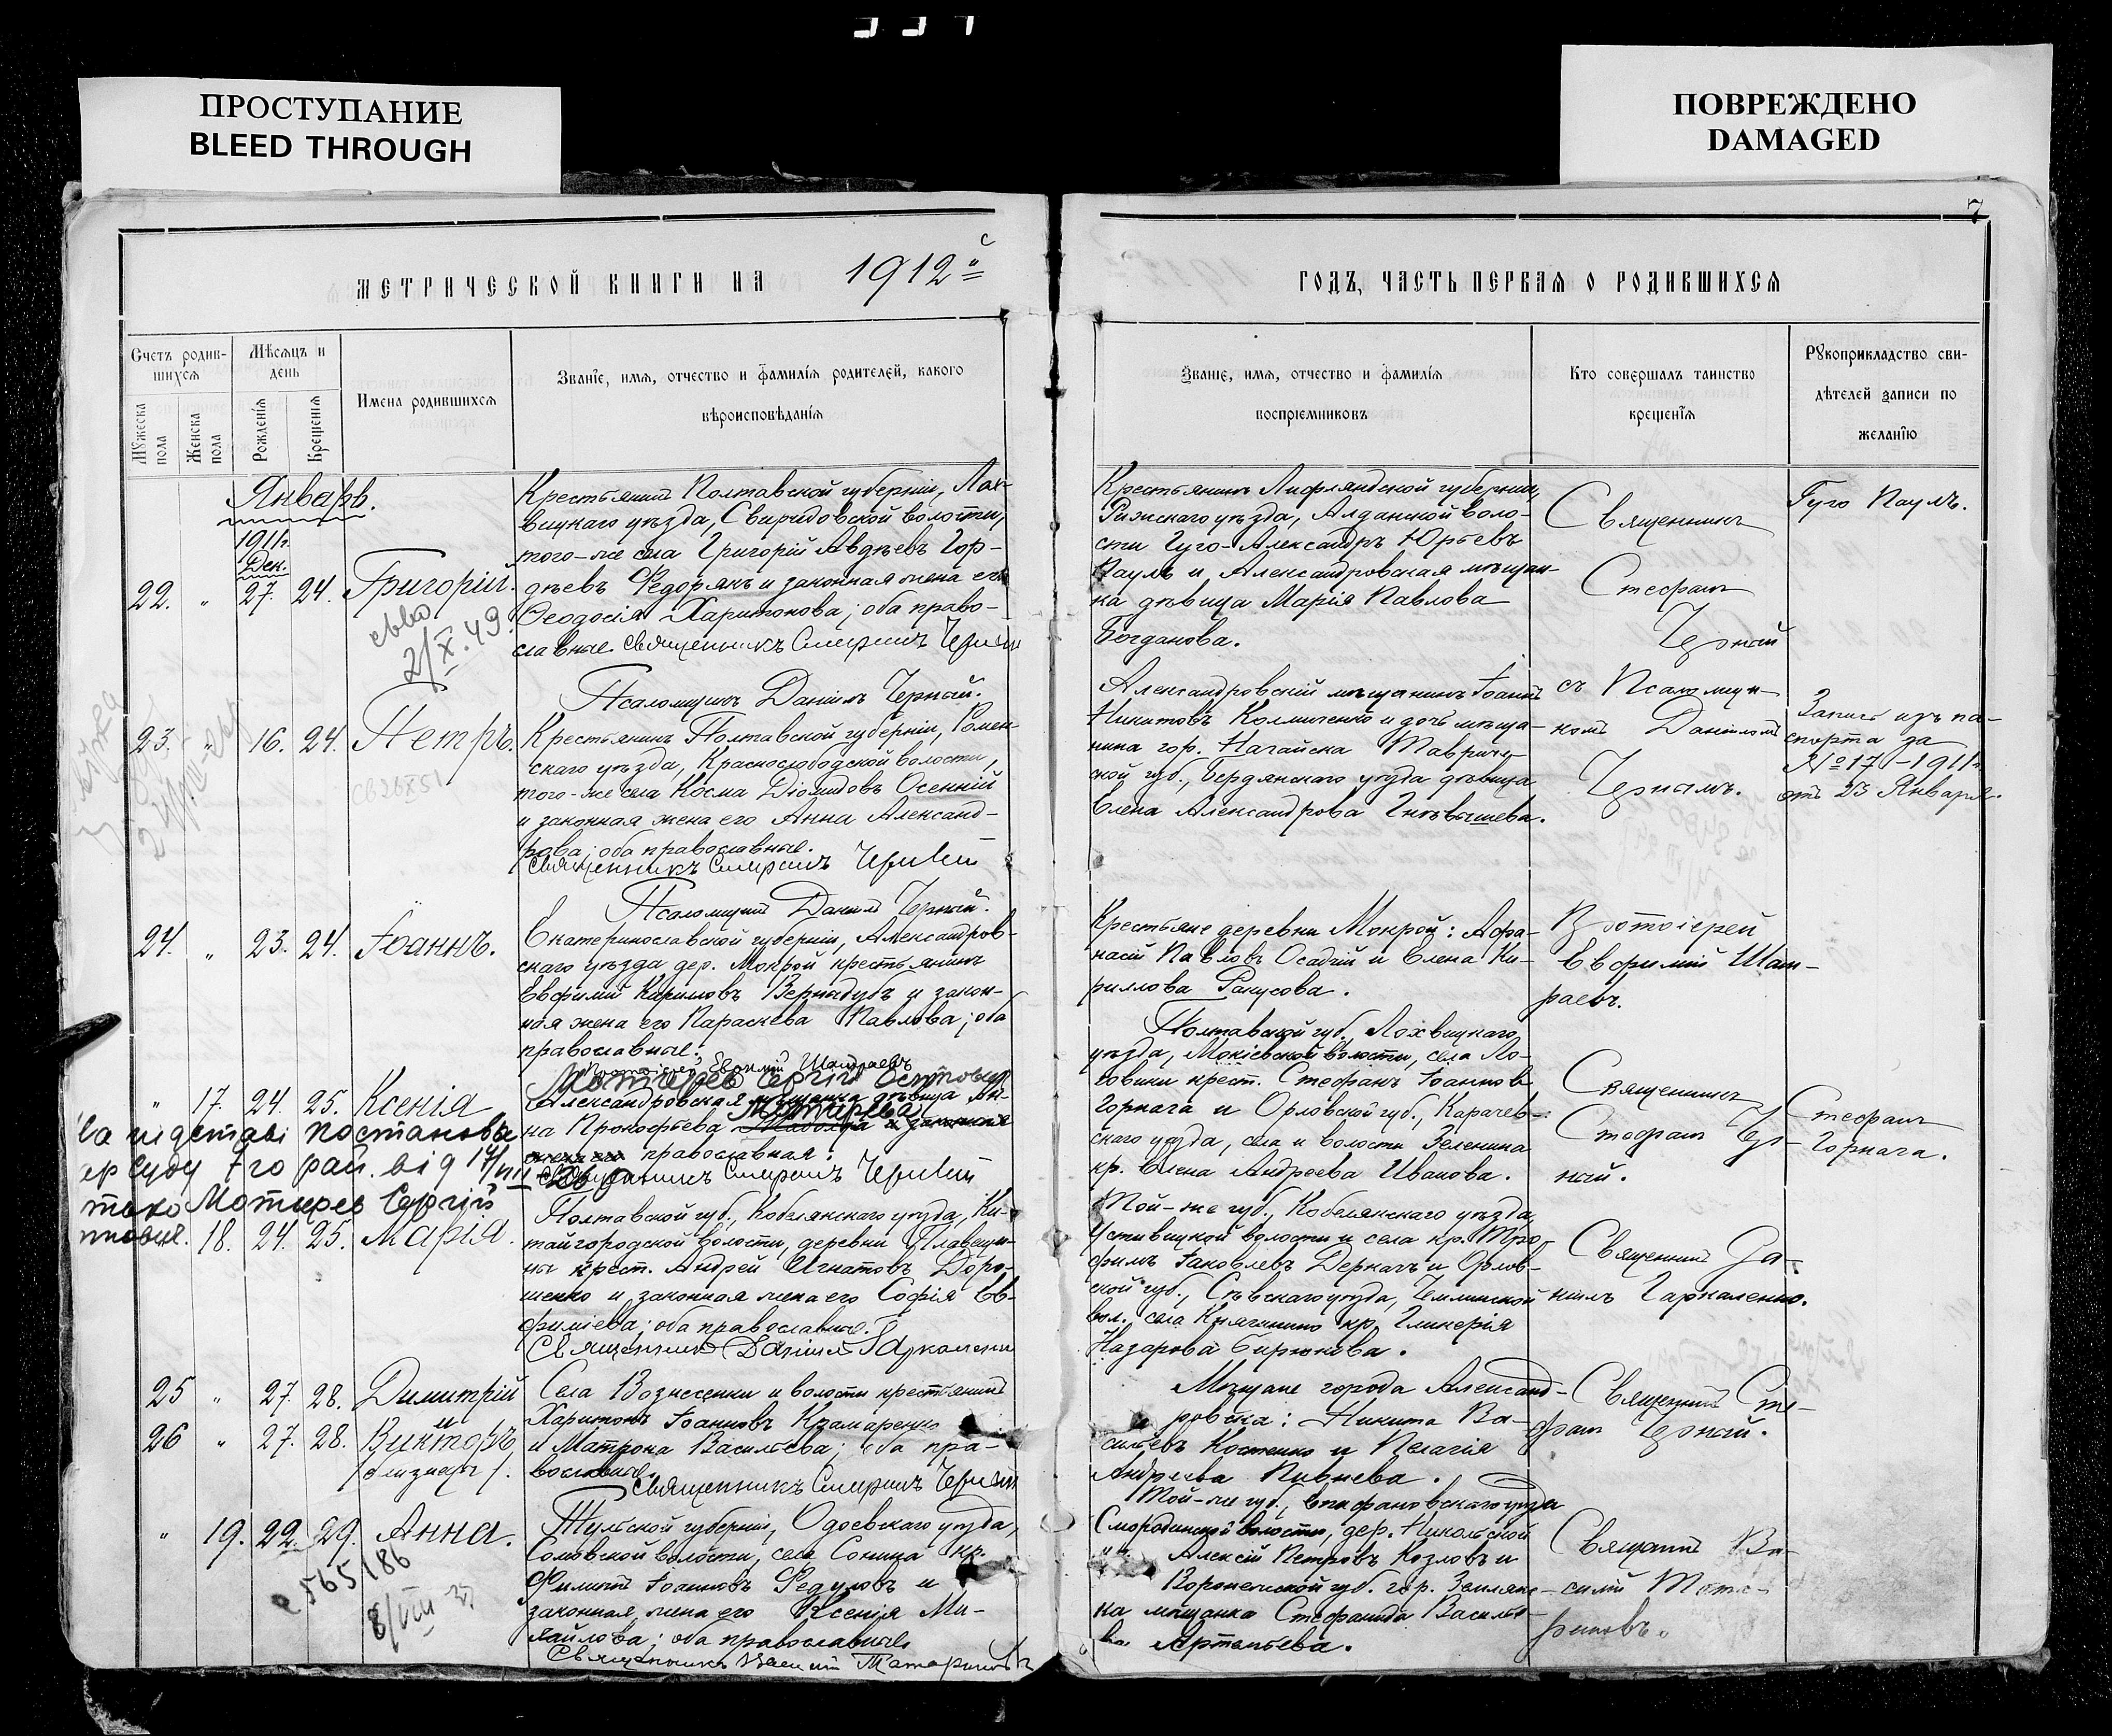 ПРОСТУПАНИЕ
BLEED THROUGH
ПОВРЕЖДЕНО
DAMAGED
7
МЕТРИЧЕСКОЙ КНИГИ НА 1912й
ГОДЪ, ЧАСТЬ ПЕРВАЯ О РОДИВШИХСЯ
Счетъ родив-
шихся
Мужеска пола
Женска пола
Мѣсяцъ и
день
Рожденія
Крещенія
Имена родившихся
Званіе, имя, отчество и фамилія родителей, какого
вѣроисповѣданія
Званіе, имя, отчество и фамилія
воспріемниковъ
Кто совершалъ таинство
крещенія
Рукоприкладство сви-
дѣтелей записи по
желанію
Январь.
1911г.
Дек.
22. " 27. 24. Григорій.
2/X.49.
Крестьянинъ Полтавской губерніи, Лох-
вицкаго уѣзда, Свиридовской волости,
того-же села Григорій Авдѣевъ Гор-
дѣевъ Федорякъ и законная жена его
Ѳеодосія Харитонова; оба право-
славные. Священникъ Стефанъ Черный
Псаломщикъ Даніилъ Черный.
Крестьянинъ Лифляндской губерніи,
Рижскаго уѣзда, Алданской воло-
сти Гуго-Александръ Юрьевъ
Пауль и Александровская мѣщан-
ка дѣвица Марія Павлова
Богданова.
Священникъ
Стефанъ
Черный
съ Псаломщи-
комъ Даніиломъ
Чернымъ.
Гуго Пауль.
23. " 16. 24. Петръ.
Крестьянинъ Полтавской губерніи, Ромен-
скаго уѣзда, Краснослободской волости,
того-же села Косма Діомидовъ Осенній
и законная жена его Анна Александ-
рова; оба православные.
Священникъ Стефанъ Черный
Псаломщикъ Даніилъ Черный.
Александровскій мѣщанинъ Іоаннъ
Никитовъ Колниченко и дочь мѣща-
нина гор. Ногайска Тавриче-
ской губ., Бердянскаго уѣзда дѣвица
Елена Александрова Гнѣвышева.
Запись изъ па-
спорта за
№ 17 - 1911г.
отъ 23 Января.
24. " 23. 24. Іоаннъ.
Екатеринославской губерніи, Александров-
скаго уѣзда дер. Мокрой крестьянинъ
Евфимій Кариловъ Вернидубъ и закон-
ная жена его Параскева Павлова; оба
православные.
Протоіерей Евфимій Шанраевъ
Крестьяне деревни Мокрой: Афа-
насій Павловъ Осадчій и Елена Ки-
риллова Ракусова.
Протоіерей
Евфимій Шан-
раевъ.
" 17. 24. 25. Ксенія
Мотирев Сергій Остпович
Александровская мѣщанка дѣвица Ан-
на Прокофьева Мотирева
православная.
Священникъ Стефанъ Черный
Полтавской губ. Лохвицкаго
уѣзда, Мокіевской волости, села Ло-
совики крест. Стефанъ Іоанновъ
Горкага и Орловской губ., Карачев-
скаго уѣзда, села и волости Зеленина
кр. Елена Андреева Иванова.
Священникъ
Стефанъ Чер-
ный.
Стефанъ
Горкага.
На підставі постанови
7го рай. від 14/VIII
Мотирев Сергій
" 18. 24. 25. Марія.
Полтавской губ., Кобелякскаго уѣзда, Ки-
тайгородской волости, деревни Улавещи-
ны крест. Андрей Игнатовъ Доро-
шенко и законная жена его Софія Ев-
фиміева; оба православные.
Священникъ Даніилъ Гаркаленко
Той-же губ., Кобелякскаго уѣзда,
Устивицкой волости и села кр. Тро-
фимъ Іаковлевъ Деркачъ и Орлов-
ской губ., Сѣвскаго уѣзда, Чемлижской
вол. села Княгинино кр. Гликерія
Назарова Бирюкова.
Священникъ Да-
ніилъ Гаркаленко.
25 " 27. 28. Димитрій
26 " 27. 28. Викторъ
/близнецы/.
Села Вознесенки и волости крестьянинъ
Харитонъ Іоанновъ Крамаренко
и Матрона Васильева; оба пра-
вославные.
Священникъ Стефанъ Черный
Мѣщане города Александ-
ровска: Никита Ва-
сильевъ Костенко и Пелагія
Андреева Пивнева.
Священникъ Сте-
фанъ Черный.
" 19. 22. 29. Анна.
565186
8/VIII
Тульской губерніи, Одоевскаго уѣзда,
Сомовской волости, села Сонина кр.
Филиппъ Іоанновъ Федуловъ и
законная жена его Ксенія Ми-
хайлова; оба православные
Священникъ Василій Татариновъ
Той-же губ., Епифановскаго уѣзда
Смородинской волости, дер. Никольской
Алексій Петровъ Козловъ и
Воронежской губ. гор. Землянс-
ка мѣщанка Стефанида Василье-
ва Артемьева.
Священникъ Ва-
силій Тата-
риновъ.